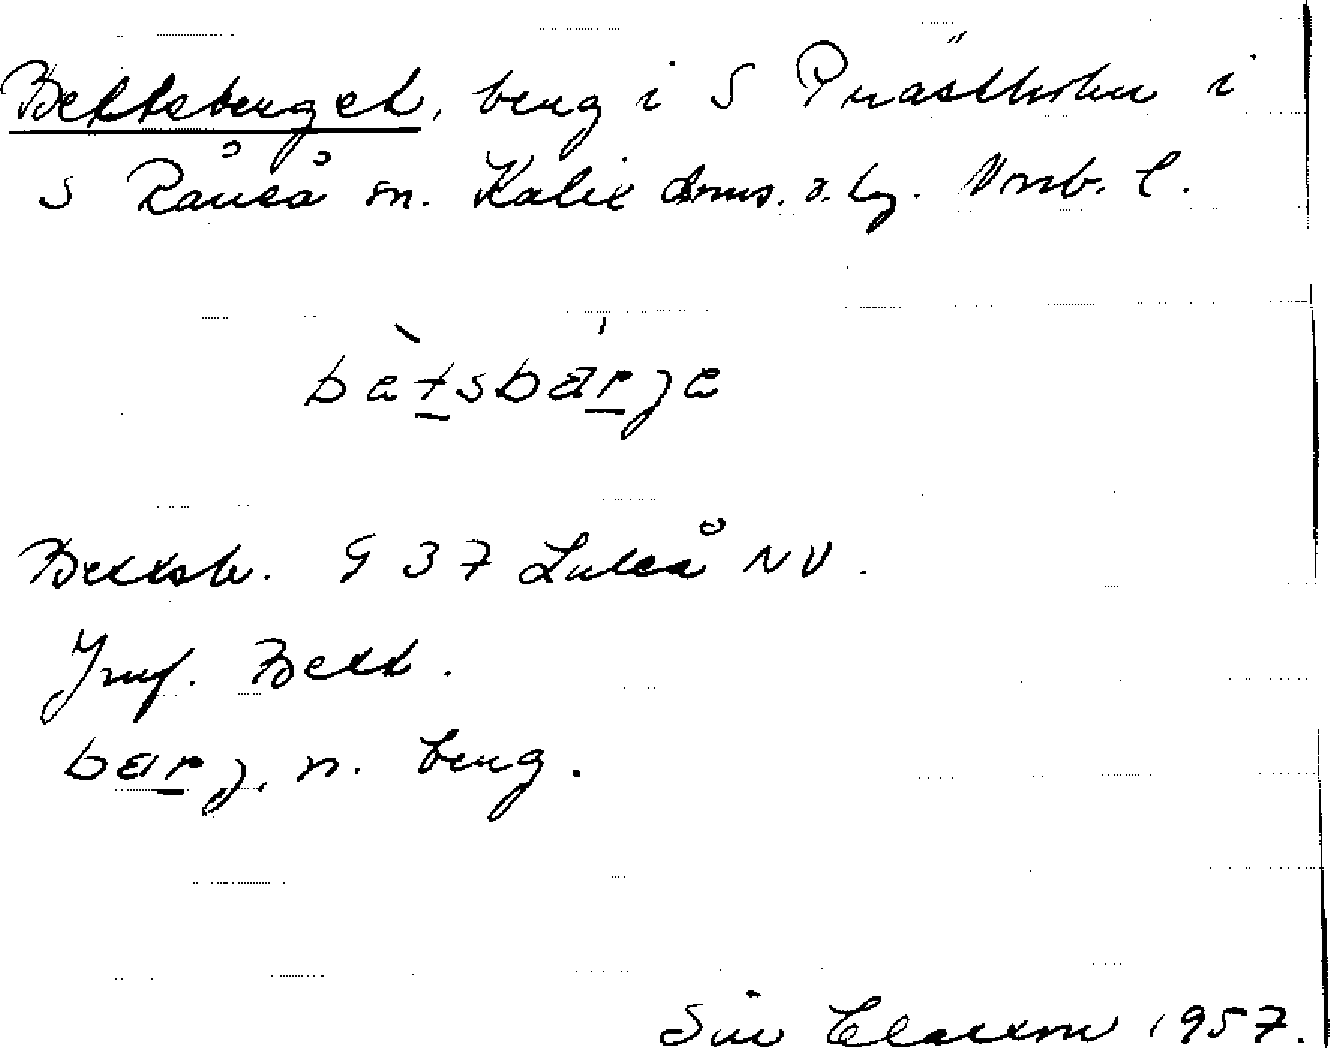 Bettsberget, berg i S Prästholm i
S Råneå sn. Kalix doms. o. lg. Nrrb. l.
bètsbárje
Bettsb. G 37 Luleå NV.
Jmf. Bett.
barj, n. berg.
Siv Clasxon 1957.